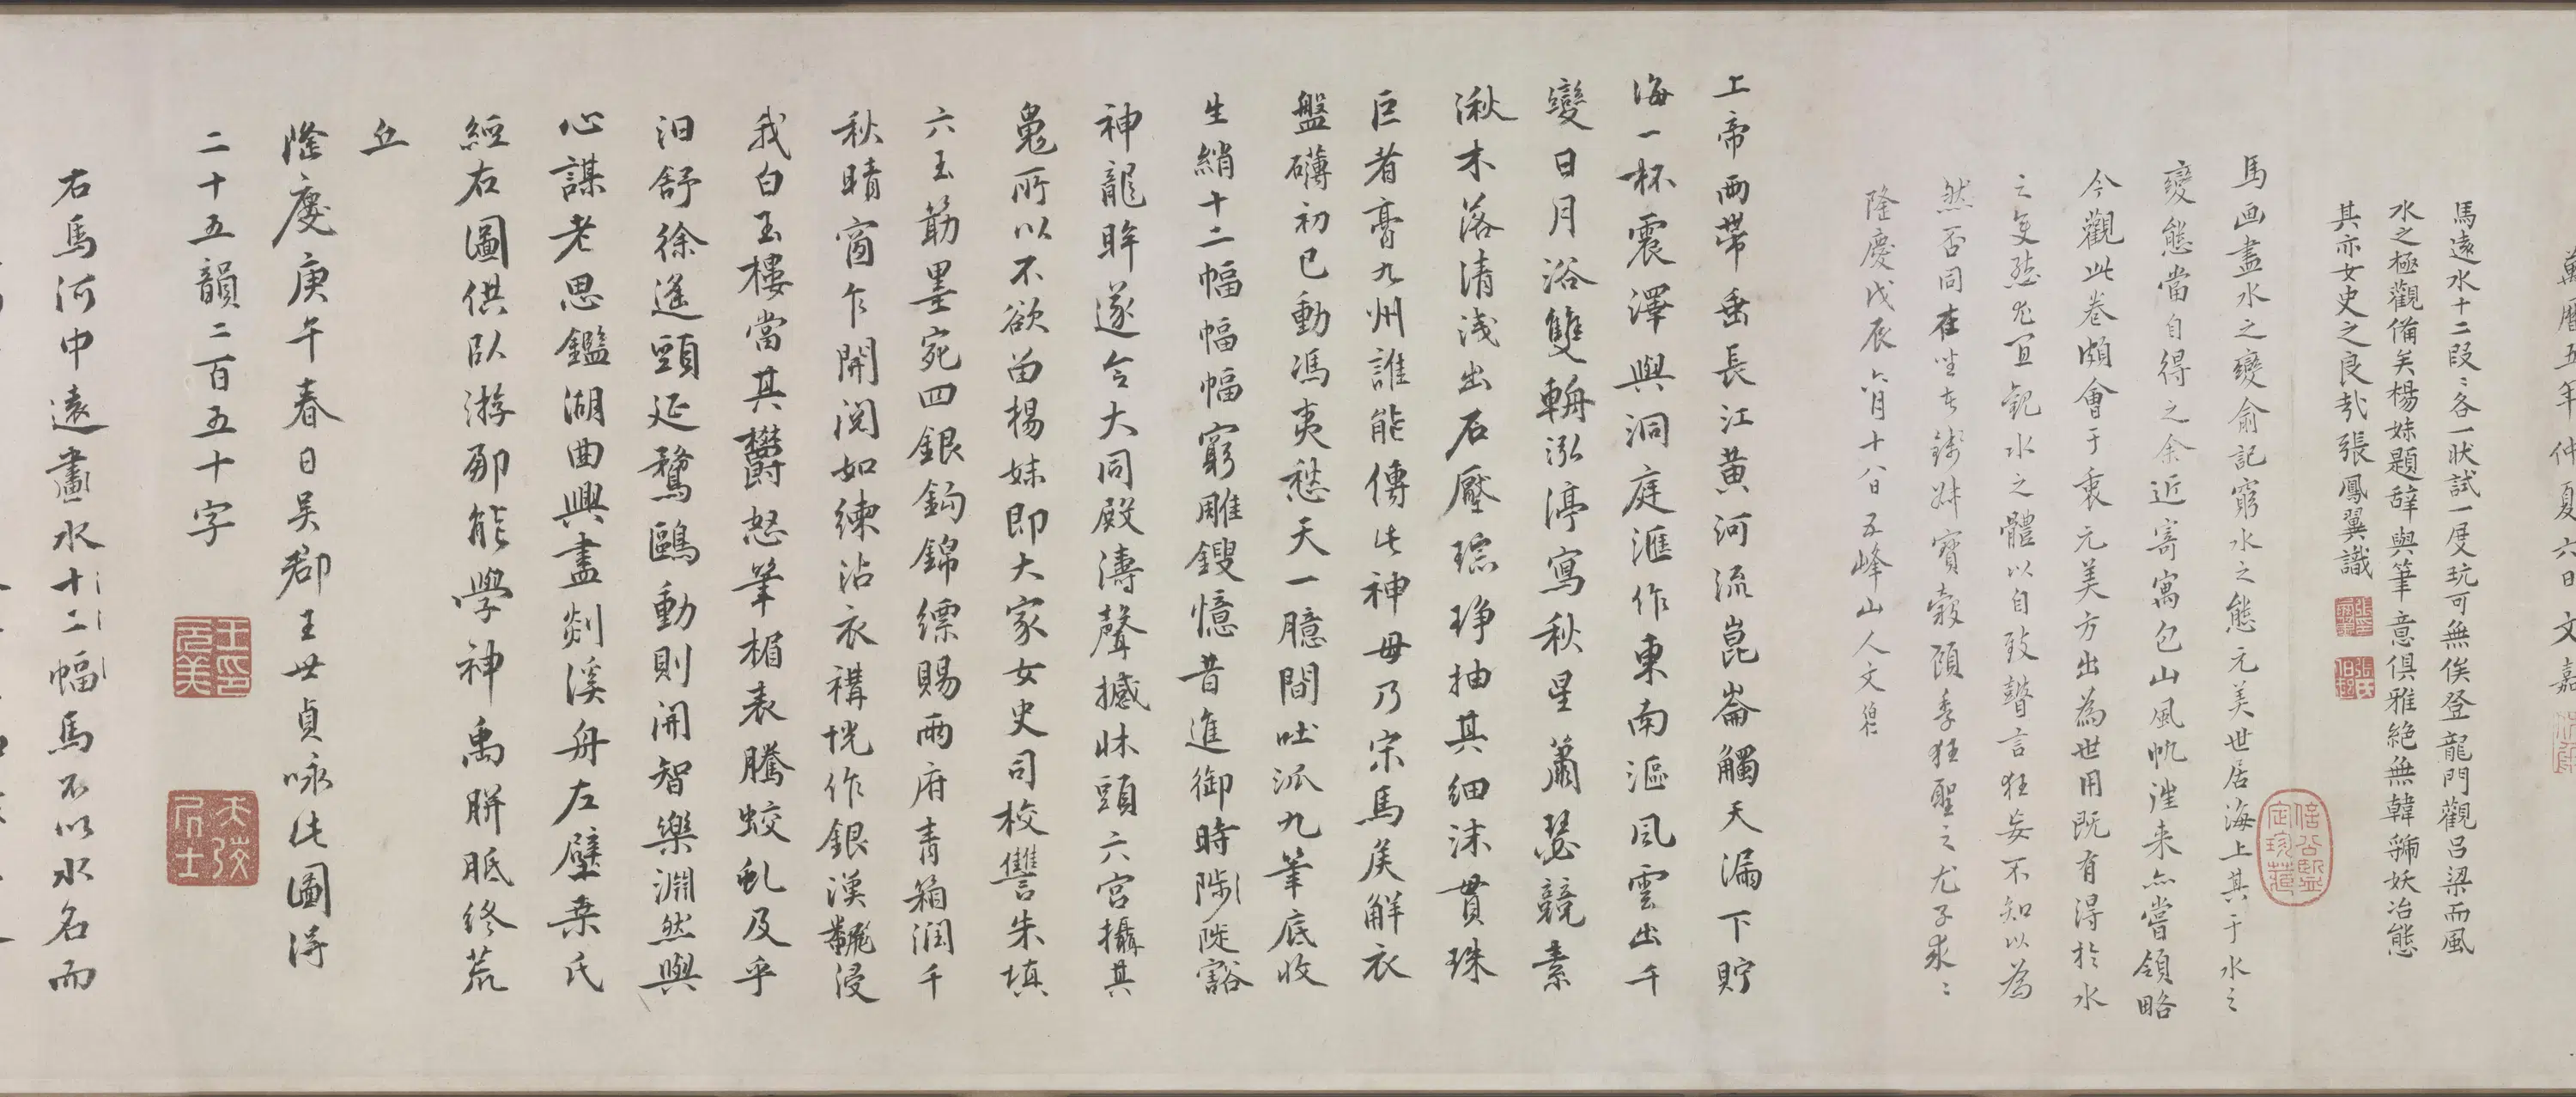 萬曆五年仲夏六日文嘉
馬遠水十二段〻各一狀試一展玩可無俟登龍門觀呂梁而風
水之極觀備矣楊妹題辭與筆意俱雅絕無韓虢妖冶態
其亦女史之良哉張鳳翼識
馬画盡水之變俞記窮水之態元美世居海上其于水之
變態當自得之余近寄寓包山風帆往来亦嘗領略
今觀此卷頗會于衷元美方出為世用既有得於水
之更 宜 水之體以自致瞽言狂妄不知以為
然否同在坐者錢 寶穀顧季狂聖之尤子求〻
隆慶戊辰六月十八日五峰山人文伯仁
上帝兩帶垂長江黄河流崑崙觸天漏下貯
海一杯震澤與洞庭滙作東南漚風雲出千
變日月浴雙輈泓渟寫秋星蕭瑟競素
湫木落清淺出石壓琮琤抽其細沫貫珠
巨者膏九州誰能傳此神毋乃宋馬矦解衣
盤礴初已動馮夷愁天一臆間吐泒九筆底收
生綃十二幅幅幅窮雕鎪憶昔進御時陟陡豁
神龍眸遂令大同殿濤聲撼牀頭六宮攝其
鬼所以不欲畱楊妹即大家女史司校讐朱填
六玉筯墨宛四銀鈎錦縹賜兩府青箱潤千
秋晴窗乍開閱如練沾衣褠恍作銀漢飜浸
我白玉樓當其欝怒筆楣表騰蛟虬及乎
汨舒徐遙頸延鶩鷗動則開智樂淵然與
心謀老思鑑湖曲興盡剡溪舟左壁桒氏
經右圖供臥游那能學神禹胼胝終荒
丘
隆慶庚午春日吳郡王世貞咏此圖得
二十五韻二百五十字
王印元美
天弢居士
右馬河中遠畫水十二幅馬不以水名而